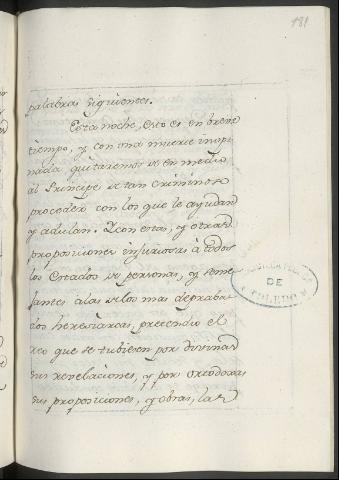 181
palabras siguientes.
Esta noche, esto es en breve
tiempo, y con una muerte inopi
nada quitaremos de en medio
al Principe de tan criminoso
proceder con los que le ayudan
y adulan. Y con estas, y otras
proposiciones injuriosas à todos
los Estados de personas, y seme
jantes a las de los mas deprava
dos heresiarcas, pretendio el
reo que se tubiesen por divinas
sus revelaciones, y por ortodoxas
sus proposiciones, y obras, las
DE
TOLEDO